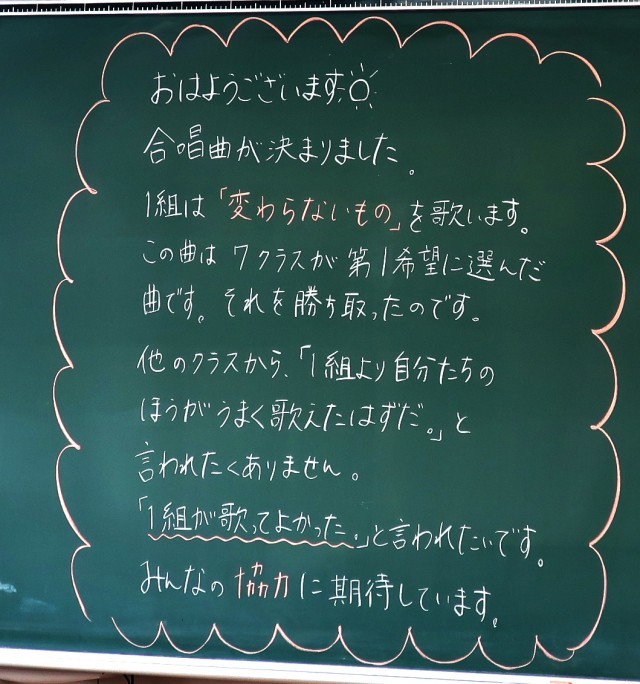 おはようございます
合唱曲が決まりました。
1組は「変わらないもの」を歌います。
この曲は7クラスが第1希望に選んだ
曲です。それを勝ち取ったのです。
他のクラスから、「1組より自分たちの
ほうがうまく歌えたはずだ。」と
言われたくありません。
「1組が歌ってよかった。」と言われたいです。
みんなの協力に期待しています。